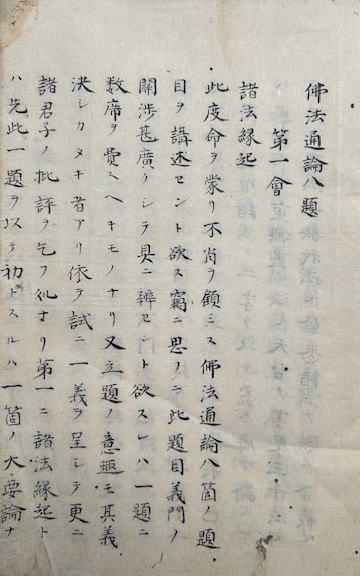 佛法通論八題
第一會
諸法縁起
此度命ヲ蒙リ不肖ヲ顧ミス佛法通論八箇ノ題
目ヲ講述セント欲ス竊ニ思フニ此題目義門ノ
關渉甚廣クシテ具ニ辨セント欲スレハ一題ニ
数席ヲ費スヘキモノナリ又立題ノ意趣モ其義
決シカタキ者アリ依テ試ニ一義ヲ呈シテ更ニ
諸君子ノ批評ヲ乞フ処ナリ第一ニ諸法縁起ト
ハ先此一題ヲ以テ初トスルハ一箇ノ大要論ナ